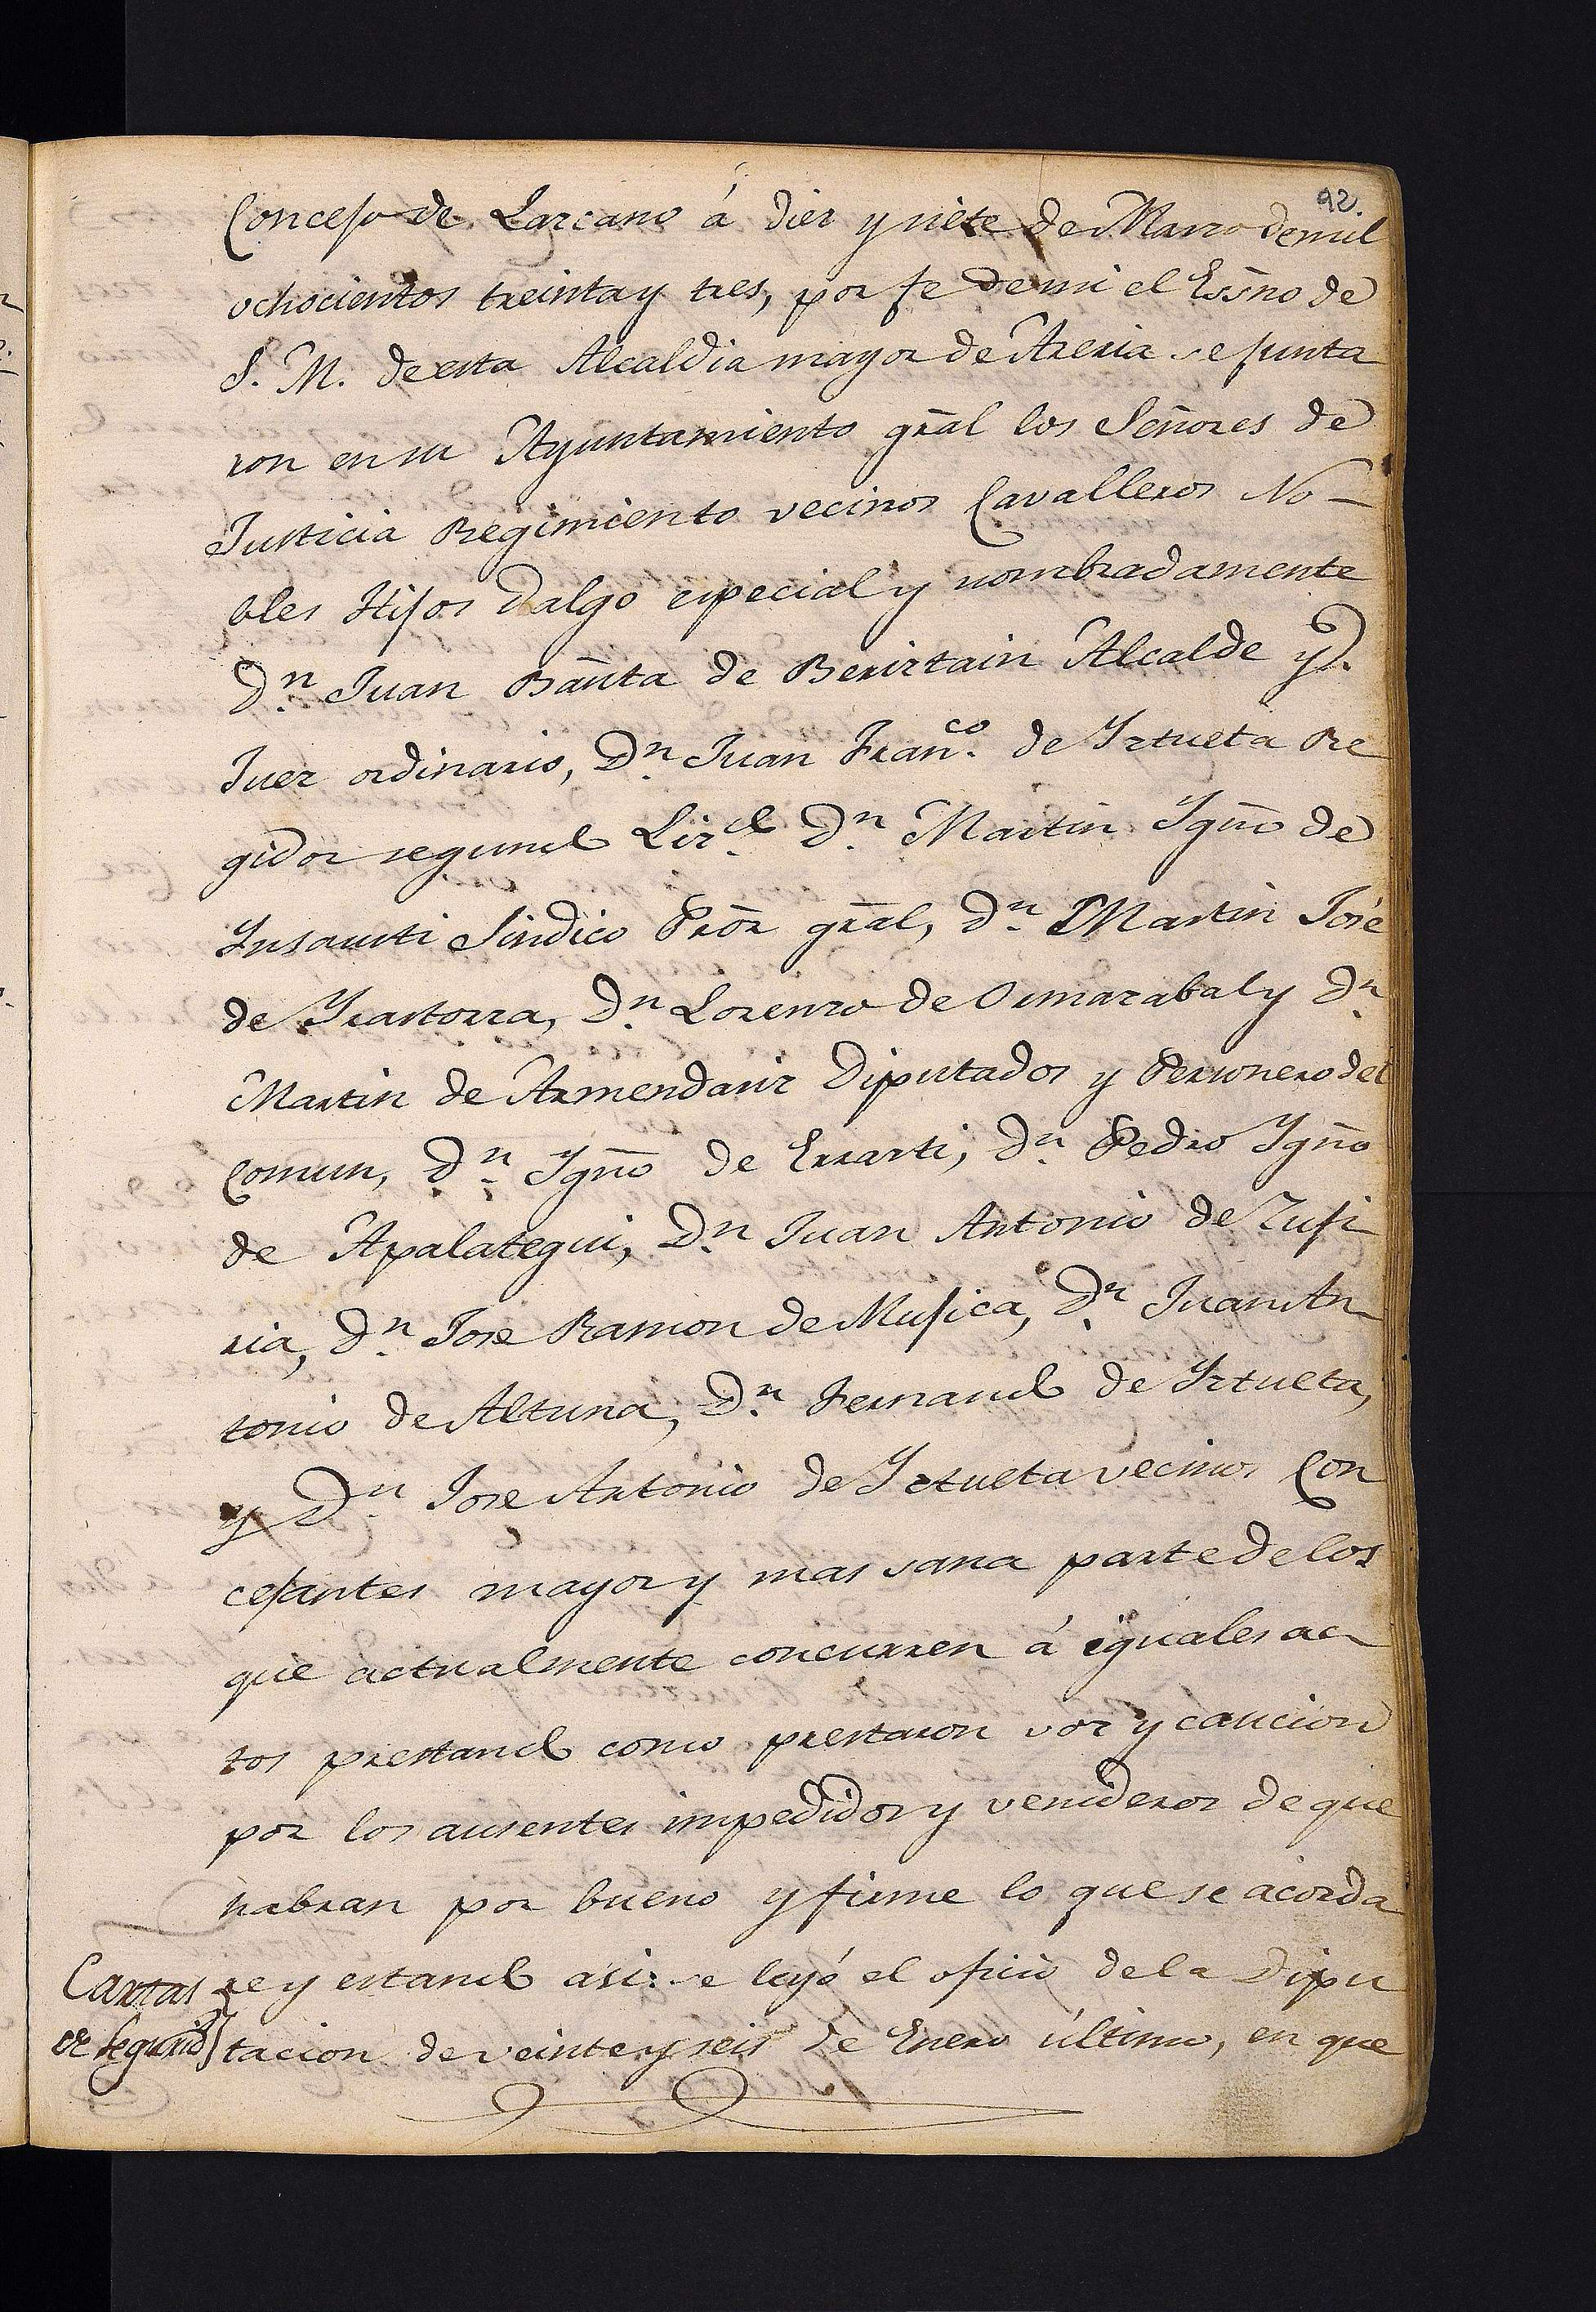 92.
Concejo de Lazcano á diez y siete de Marzo de mil
ochocientos treinta y tres, por fe de mi el Essño de
S. M. de esta Alcaldia mayor de Areria se junta
ron en su Ayuntamiento gral los Señores de
Justicia Regimiento vecinos Cavalleros No-
bles Hijos dalgo especial y nombradamente
Dn. Juan Bauta de Berirtain Alcalde y
Juez ordinario, Dn. Juan Franco. de Yztueta Re
gidor segundo Dn. Martin Ygno de
Insausti Sindico Pror gral, Dn. Martin José
de Ycastorza, Dn. Lorenzo de Oimazabal y Dn.
Martin de Armendariz Diputados y Personero del
comun, Dn. Ygno de Errarti, Dn. Pedro Ygno
de Apalategui, Dn. Juan Antonio de Zufi
ria, Dn. Jose Ramon de Mujica, Dn. Juan An
tonio de Altuna, Dn. Fernando de Yztueta,
y Dn. Jose Antonio de Yztueta vecinos Con
cejantes mayor y mas sana parte de los
que actualmente concurren á iguales ac
tos prestando como prestaron voz y caucion
por los ausentes impedidos y venideros de que
habran por bueno y firme lo que se acorda
Cartas re y estando asi: se leyó el oficio de la Dipu
de Segurid tacion de veinte y seis de Enero último, en que